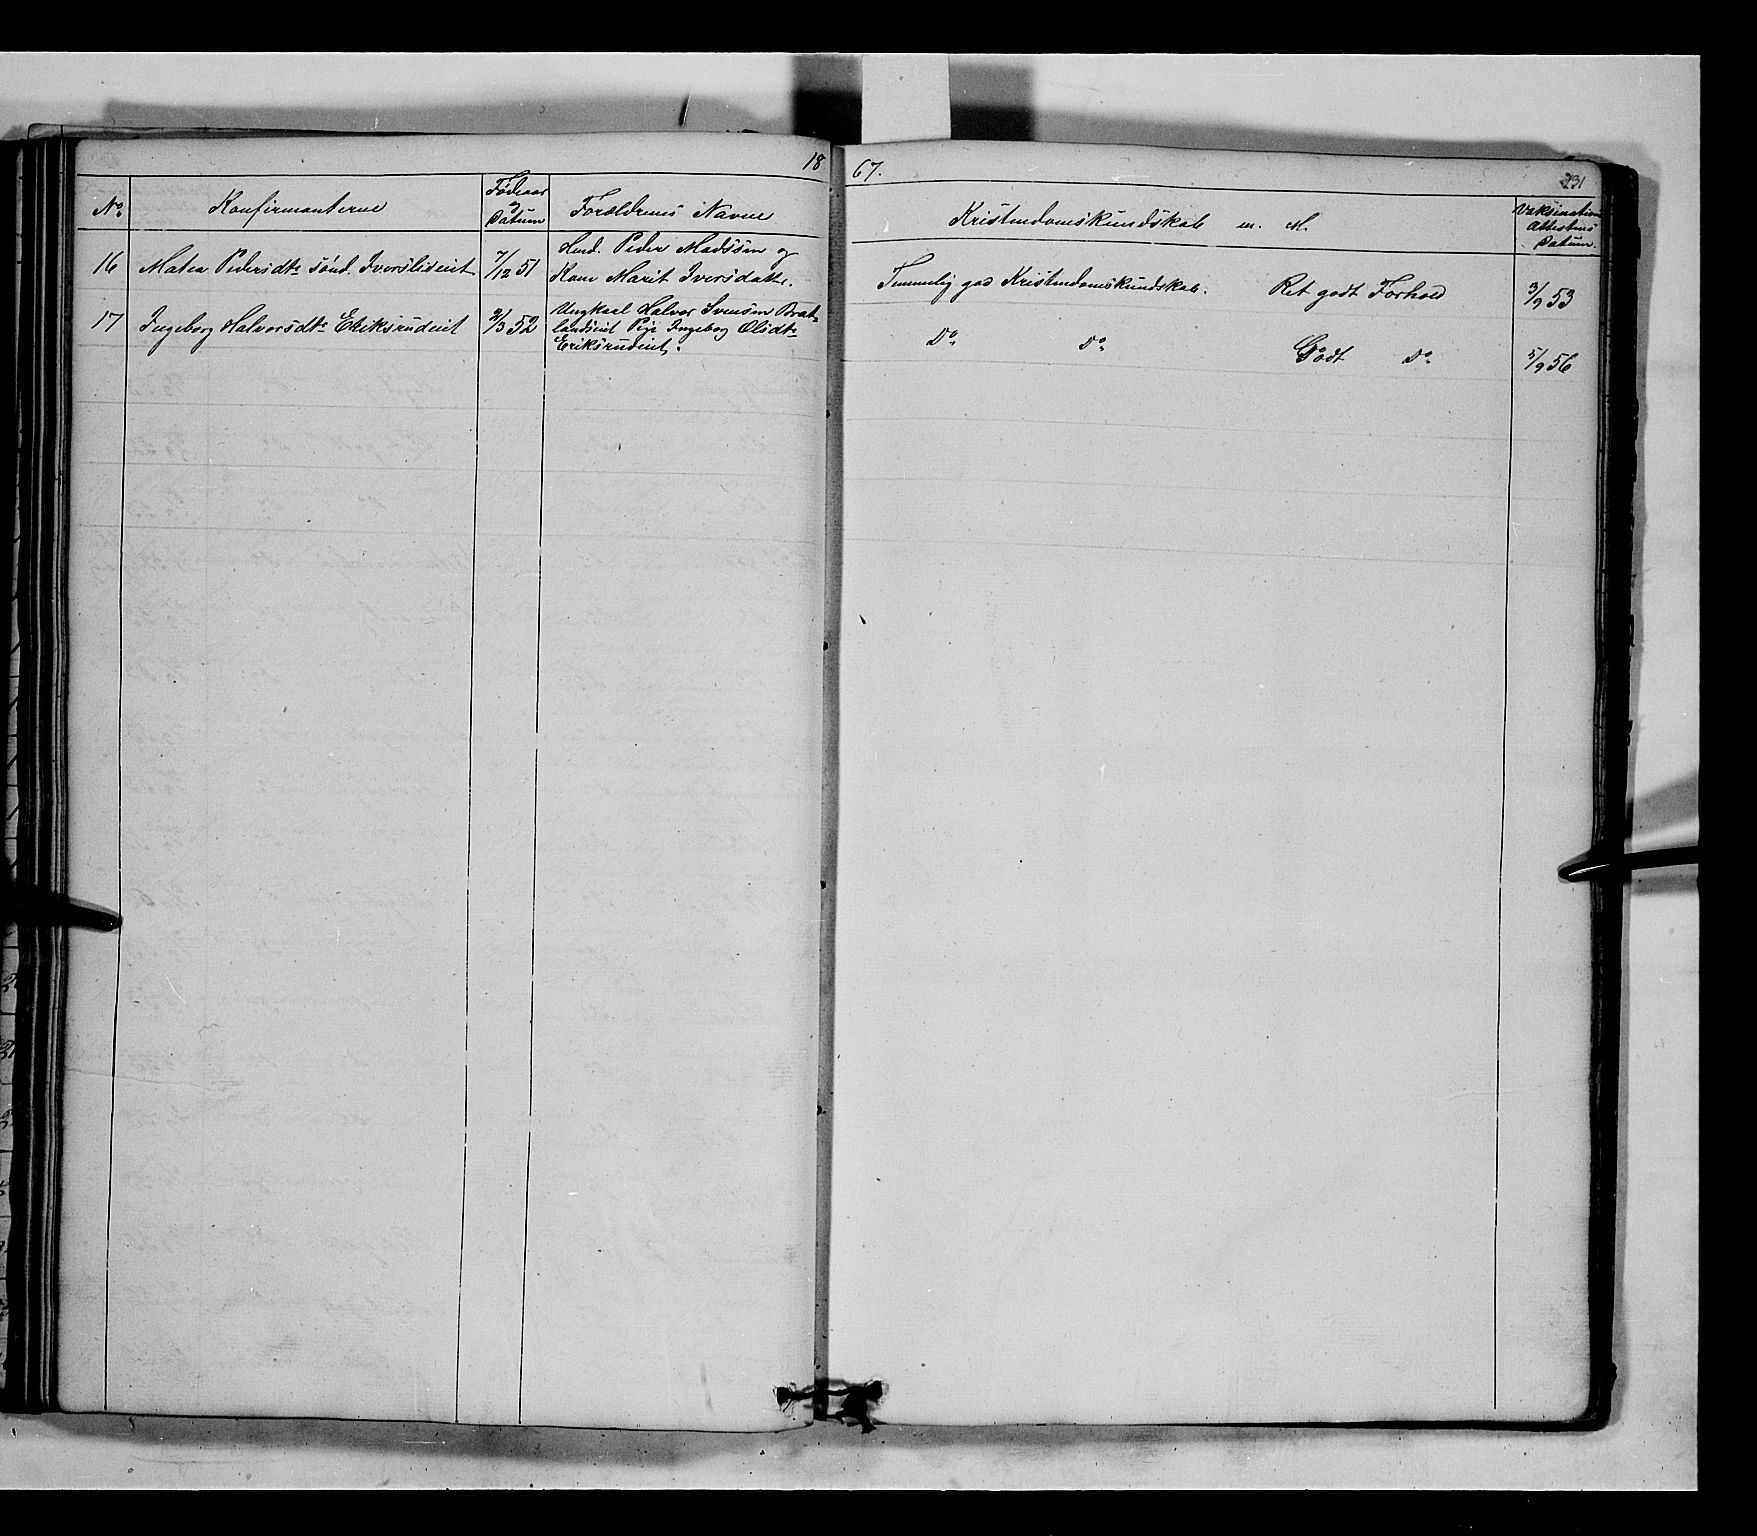 18 67.
231
No. Konfirmanterne Fødeaar og Datum Forældrenes Navne Kristendomskundskab m. M. Vaksinations Attestens Datum.
16 Matea Pedersdtr sönd. Iversliéeiet 7/12 51 Husd. Peder Madssen og
Kone Marit Iversdatter. Temmelig god Kristendomskundskab. Ret godt Forhold 3/9 53
17 Ingeborg Halvorsdtr Eriksrudeiet 2/3 52 Ungkarl Halvor Svensen Brat-
landseiet Pige Ingeborg Olsdtr
Eriksrudeiet. Do. Do. Godt Do. 5/9 56